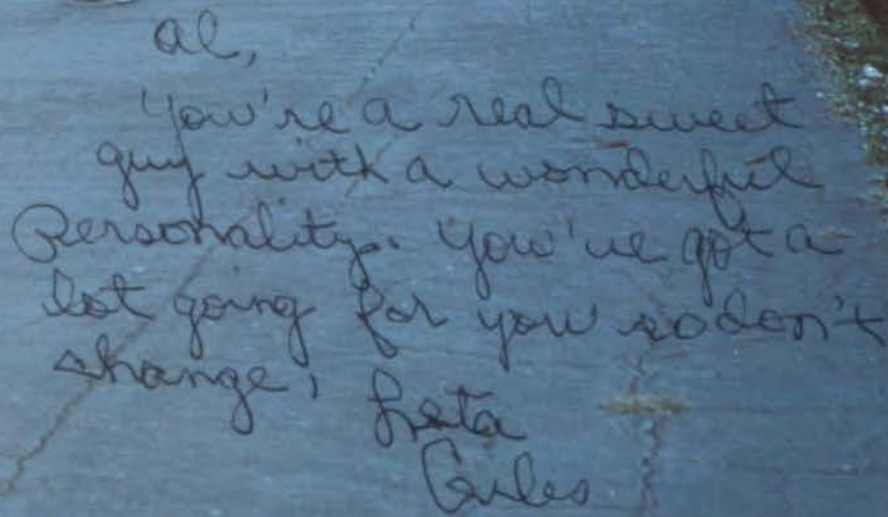 Al,
You're a real sweet
guy with a wonderful
Personality. You've got a
lot going for you so don't
change,
Leta